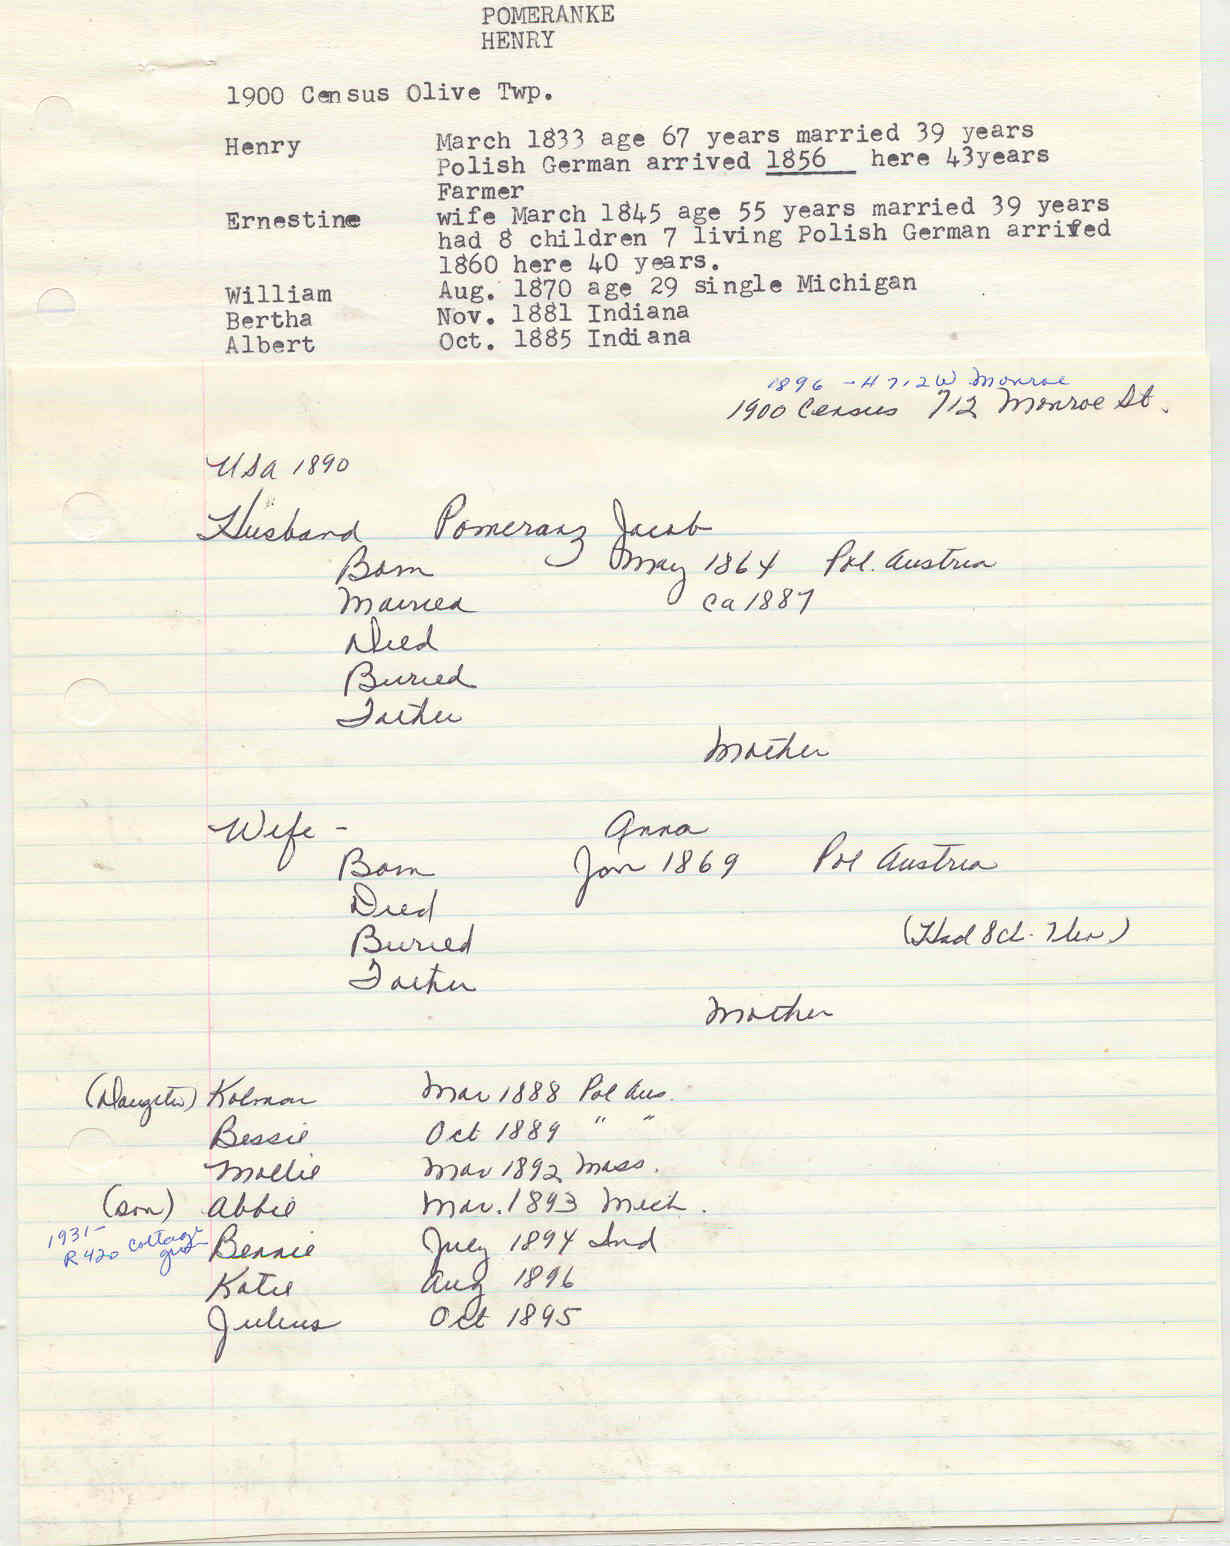 POMERANKE
HENRY
1900 Census Olive Twp.
Henry March 1833 age 67 years married 39 years
Polish German arrived 1856 here 43years
Farmer
Ernestine wife March 1845 age 55 years married 39 years
had 8 children 7 living Polish German arrived
1860 here 40 years.
William Aug. 1870 age 29 single Michigan
Bertha Nov. 1881 Indiana
Albert Oct. 1885 Indiana
1896 - H 712 W Monroe
1900 Census 712 Monroe St.
USA 1890
Husband Pomeranz Jacob
Born May 1864 Pol. Austria
Married ca 1887
Died
Buried
Father
Mother
Wife - Anna
Born Jan 1869 Pol Austria
Died
Buried (Had 8 ch. 7 liv.)
Father
Mother
(Daughter) Kolman Mar 1888 Pol Aus.
Bessie Oct 1889 " "
Mollie Mar 1892 Mass.
(son) Abbie Mar. 1893 Mich.
1931-
R 420 Cottage Bennie July 1894 Ind
Katie Aug 1896
Julius Oct 1895